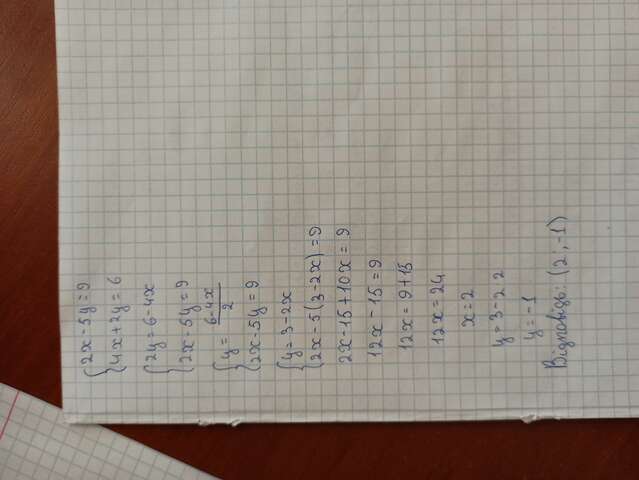 {2x-5y=9
{4x+2y=6
{2y=6-4x
{2x-5y=9
{y=\frac{6-4x}{2}
{2x-5y=9
{y=3-2x
{2x-5(3-2x)=9
2x-15+10x=9
12x-15=9
12x=9+15
12x=24
x=2
y=3-2·2
y=-1
Відповідь: (2;-1)